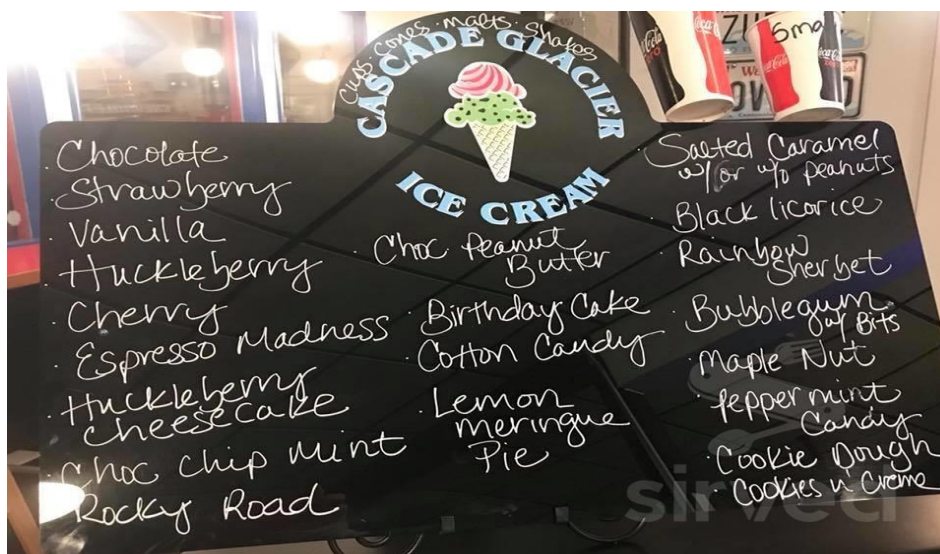 Cups · Cones · malts · Shakes
CASCADE GLACIER
ICE CREAM
· Chocolate
· Strawberry
· Vanilla
· Huckleberry
· Cherry
· Espresso Madness
· Huckleberry
Cheesecake
· Choc Chip Mint
· Rocky Road
· Choc Peanut
Butter
· Birthday Cake
· Cotton Candy
· Lemon
meringue
Pie
· Salted Caramel
w/ or w/o peanuts
· Black licorice
· Rainbow
Sherbet
· Bubblegum
w/ Bits
· Maple Nut
· Peppermint
Candy
· Cookie Dough
· Cookies n' Creme
Coca-Cola
zero
Coca-Cola
Small
Coca-Cola
sirved